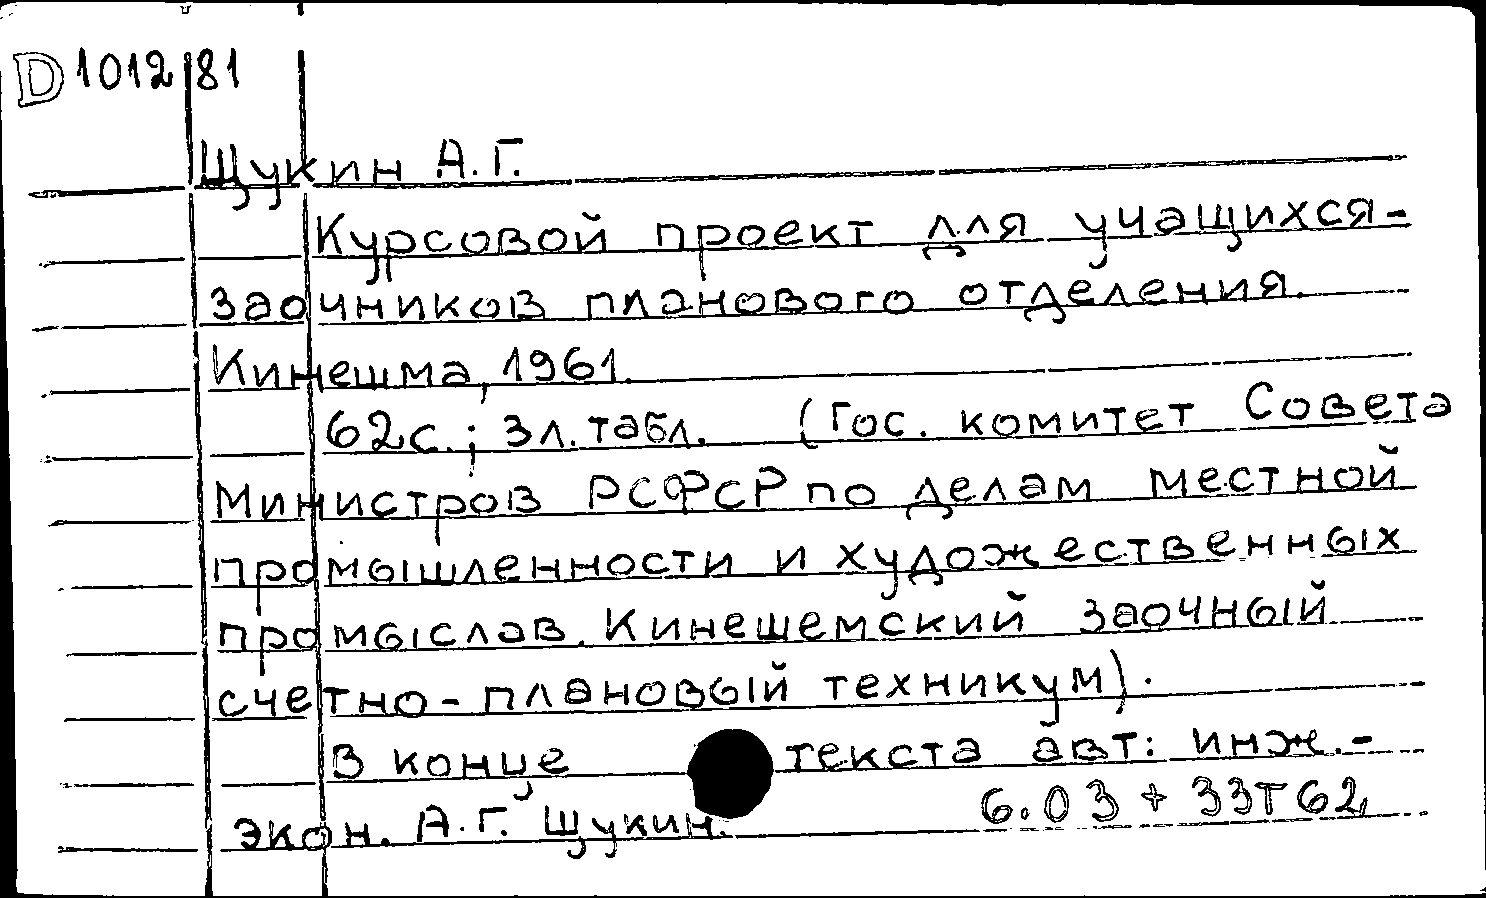 D 1012 81
Щукин А.Г.
Курсовой проект для учащихся-
заочников планового отделения.
Кинешма, 1961.
62с.; 3л. табл. (Гос. комитет Совета
Министров РСФСР по делам местной
промышленности и художественных
промыслов. Кинешемский заочный
счетно-плановый техникум).
В конце текста авт: инж.-
экон. А.Г. Щукин.
6.03 + 33Т62